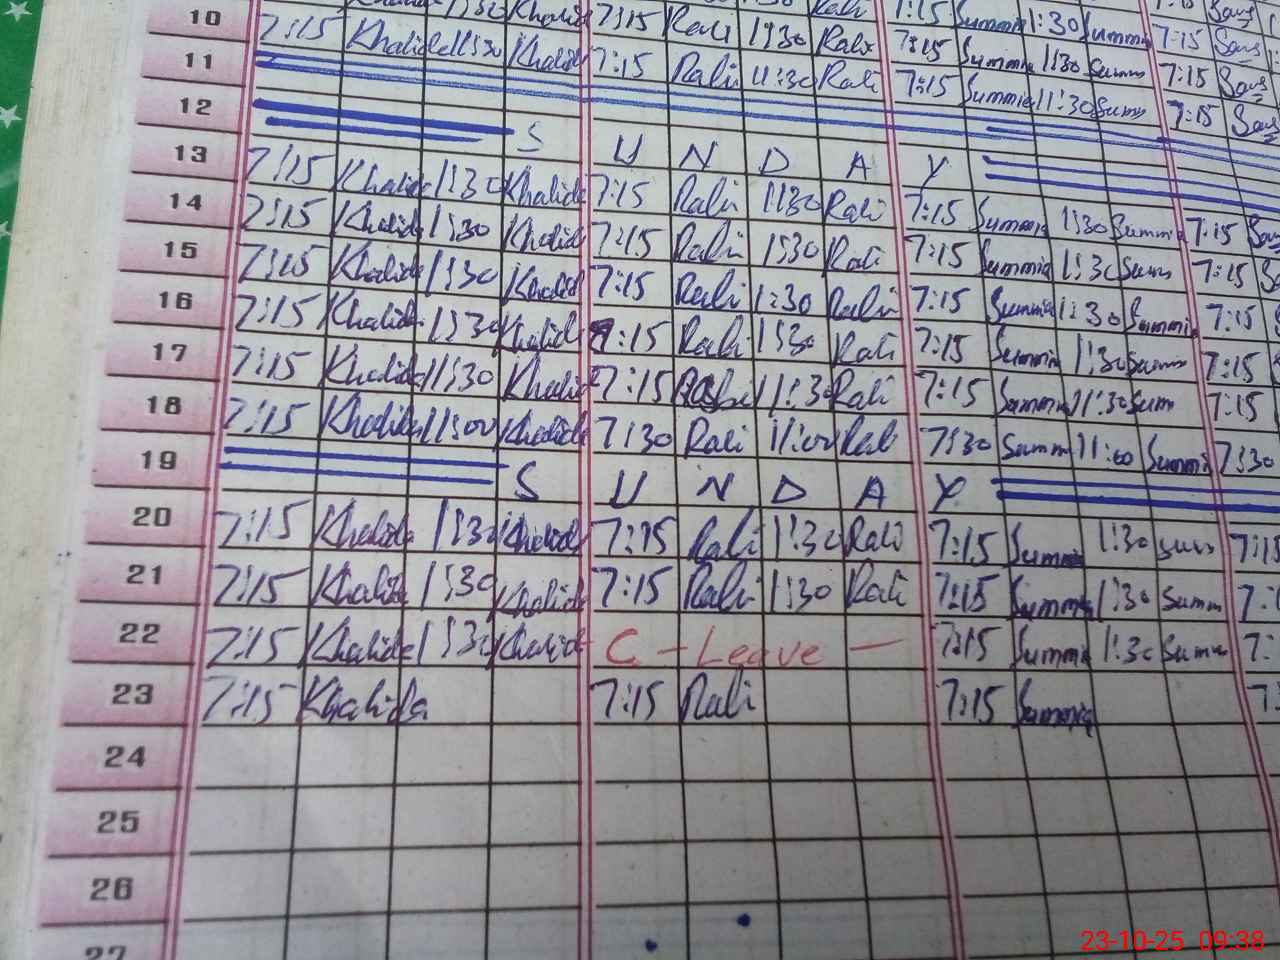 10 7:15 Khalida 11:30 Khalida 7:15 Rabi 1:30 Rabi 7:15 Summia 1:30 Summia 7:15
11 7:15 Rabi 11:30 Rabi 7:15 Summia 11:30 Summ 7:15
12 S U N D A Y
13 7:15 Khalida 1:30 Khalida 7:15 Rabi 1:30 Rabi 7:15 Summia 1:30 Summia 7:15
14 7:15 Khalida 1:30 Khalida 7:15 Rabi 1:30 Rabi 7:15 Summia 1:30 Summ 7:15
15 7:15 Khalida 1:30 Khalid 7:15 Rabi 1:30 Rabi 7:15 Summia 1:30 Summia 7:15
16 7:15 Khalida 1:30 Khalida 7:15 Rabi 1:30 Rabi 7:15 Summia 1:30 Summ 7:15
17 7:15 Khalida 11:30 Khalid 7:15 Rabi 11:30 Rabi 7:15 Summia 11:30 Sum 7:15
18 7:15 Khalida 11:00 Khalida 7:30 Rabi 11:00 Rabi 7:30 Summi 11:00 Summia 7:30
19 S U N D A Y
20 7:15 Khalida 1:30 Khalida 7:15 Rabi 1:30 Rabi 7:15 Summia 1:30 Summ 7:15
21 7:15 Khalida 1:30 Khalida 7:15 Rabi 1:30 Rabi 7:15 Summia 1:30 Summ 7:
22 7:15 Khalida 1:30 Khalida C - Leave - 7:15 Summia 1:30 Summ 7:
23 7:15 Khalida 7:15 Rabi 7:15 Summia 7:
24
25
26
27
23-10-25 09:38